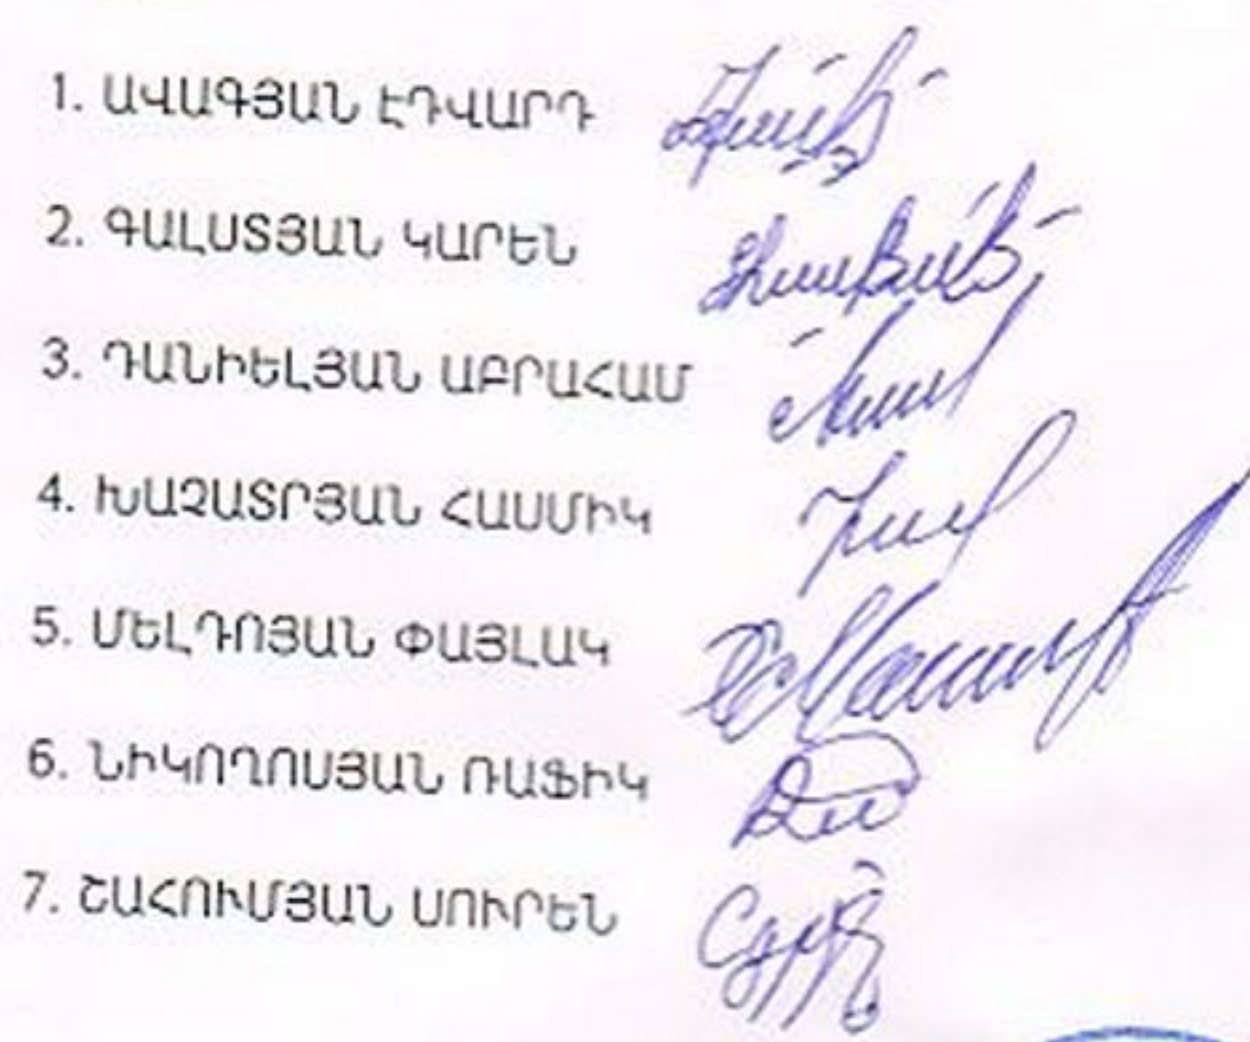 1. ԱՎԱԳՅԱՆ ԷԴՎԱՐԴ
2. ԳԱԼՍՏՅԱՆ ԿԱՐԵՆ
3. ԴԱՆԻԵԼՅԱՆ ԱԲՐԱՀԱՄ
4. ԽԱՉԱՏՐՅԱՆ ՀԱՍՄԻԿ
5. ՄԵԼԴՈՅԱՆ ՓԱՅԼԱԿ
6. ՆԻԿՈՂՈՍՅԱՆ ՌԱՖԻԿ
7. ՇԱՀՈՒՄՅԱՆ ՍՈՒՐԵՆ